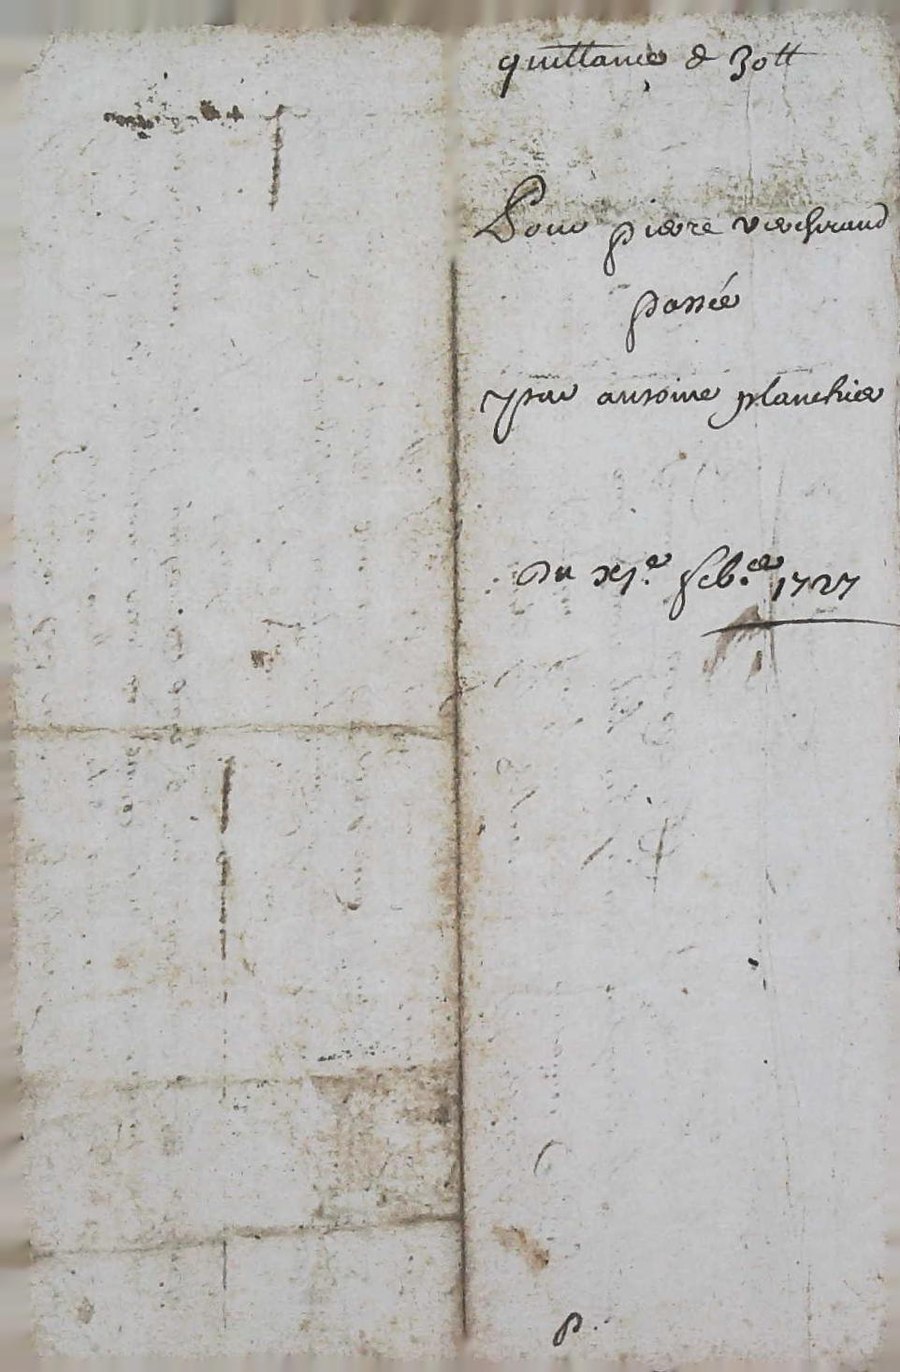 quittance de 30 tt
Pour pierre verchraud
passée
par antoine planchier
Du xi.e feb.er 1727
p.